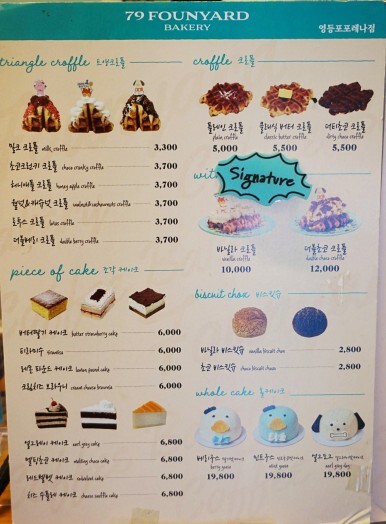 79 FOUNYARD
BAKERY
영등포포레나점
triangle croffle 트앵크로플
밀크 크로플 milk croffle 3,300
초코크런키 크로플 choco crunky croffle 3,700
허니애플 크로플 honey apple croffle 3,700
월넛&캐슈넛 크로플 walnut&cashewnuts croffle 3,700
로투스 크로플 lotus croffle 3,700
더블베리 크로플 double berry croffle 3,700
croffle 크로플
플레인 크로플
plain croffle
5,000
클래식 버터 크로플
classic butter croffle
5,500
더티초코 크로플
dirty choco croffle
5,500
with
Signature
바닐라 크로플
vanilla croffle
10,000
더블초코 크로플
12,000
piece of cake 조각 케이크
버터딸기 케이크 butter strawberry cake 6,000
티라미수 tiramisu 6,000
레몬 파운드 케이크 lemon pound cake 6,000
크림치즈 브라우니 cream cheese brownie 6,000
얼그레이 케이크 earl grey cake 6,800
멜팅초코 케이크 melting choco cake 6,800
레드벨벳 케이크 redvelvet cake 6,800
치즈 수플레 케이크 cheese souffle cake 6,800
biscuit choux 비스킷슈
바닐라 비스킷슈 vanilla biscuit choux 2,800
초코 비스킷슈 choco biscuit choux 2,800
whole cake 홀케이크
berry goose
19,800
mint goose
19,800
earl grey dog
19,800